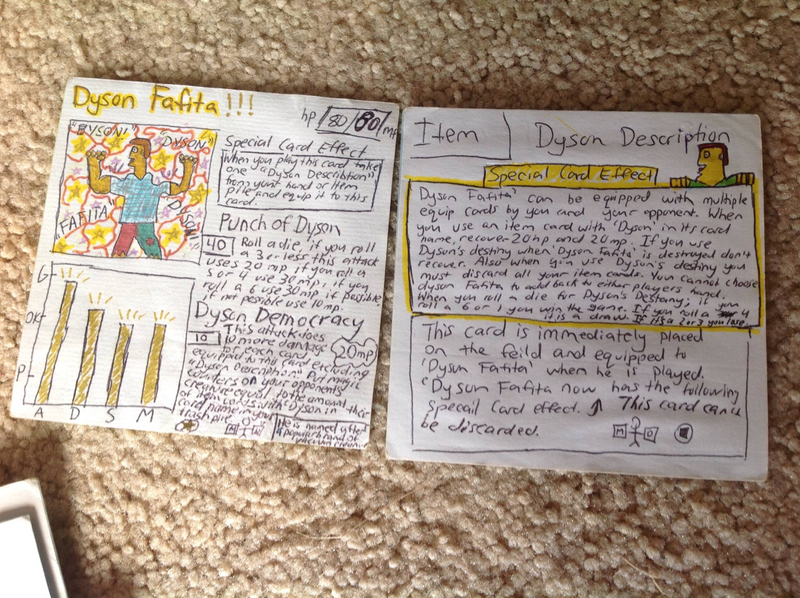 Dyson Fafita!!!
hp 80/80 mp
"DYSON!" "DYSON"
FAFITA
DYSON!!
Special Card Effect
When you play this card take
one "Dyson Describtion"
from your hand or Item
Pile and equip it to this
card.
Punch of Dyson
40 Roll a die, if you roll
a 3 or less this attack
uses 20 mp, if you roll a
5 or 4 use 30 mp, if you
roll a 6 use 30 mp if possible
if not posible use 10 mp.
Dyson Democracy
10 This attack does
10 more damage
for each card
equipped to this card excluding
"Dyson Description". Add magic
counters on your opponents
creature equal to the amount
of item cards with 'Dyson' in their
card name in your
trash pile.
20mp
He is named after
a popular brand of
vacuum cleaner
G
OK
P
A D S M
M O
Item
Dyson Description
Special Card Effect
Dyson Fafita' can be equipped with multiple
equip cards by you and your opponent. When
you use an item card with 'Dyson' in its card
name, recover 20 hp and 20 mp. If you use
Dyson's destiny when 'Dyson Fafita' is destroyed don't
recover. Also when you use Dyson's destiny you
must discard all your item cards. You cannot choose
Dyson Fafita to add back to either players hand.
When you roll a die for Dyson's Destany; if you
roll a 6 or 1 you win the game. If you roll a 4
it is a draw. If its a 2 or 3 you lose
This card is immediately placed
on the feild and equipped to
'Dyson Fafita' when he is played.
'Dyson Fafita now has the following
Specail Card effect. ↑ This card can't
be discarded.
M O